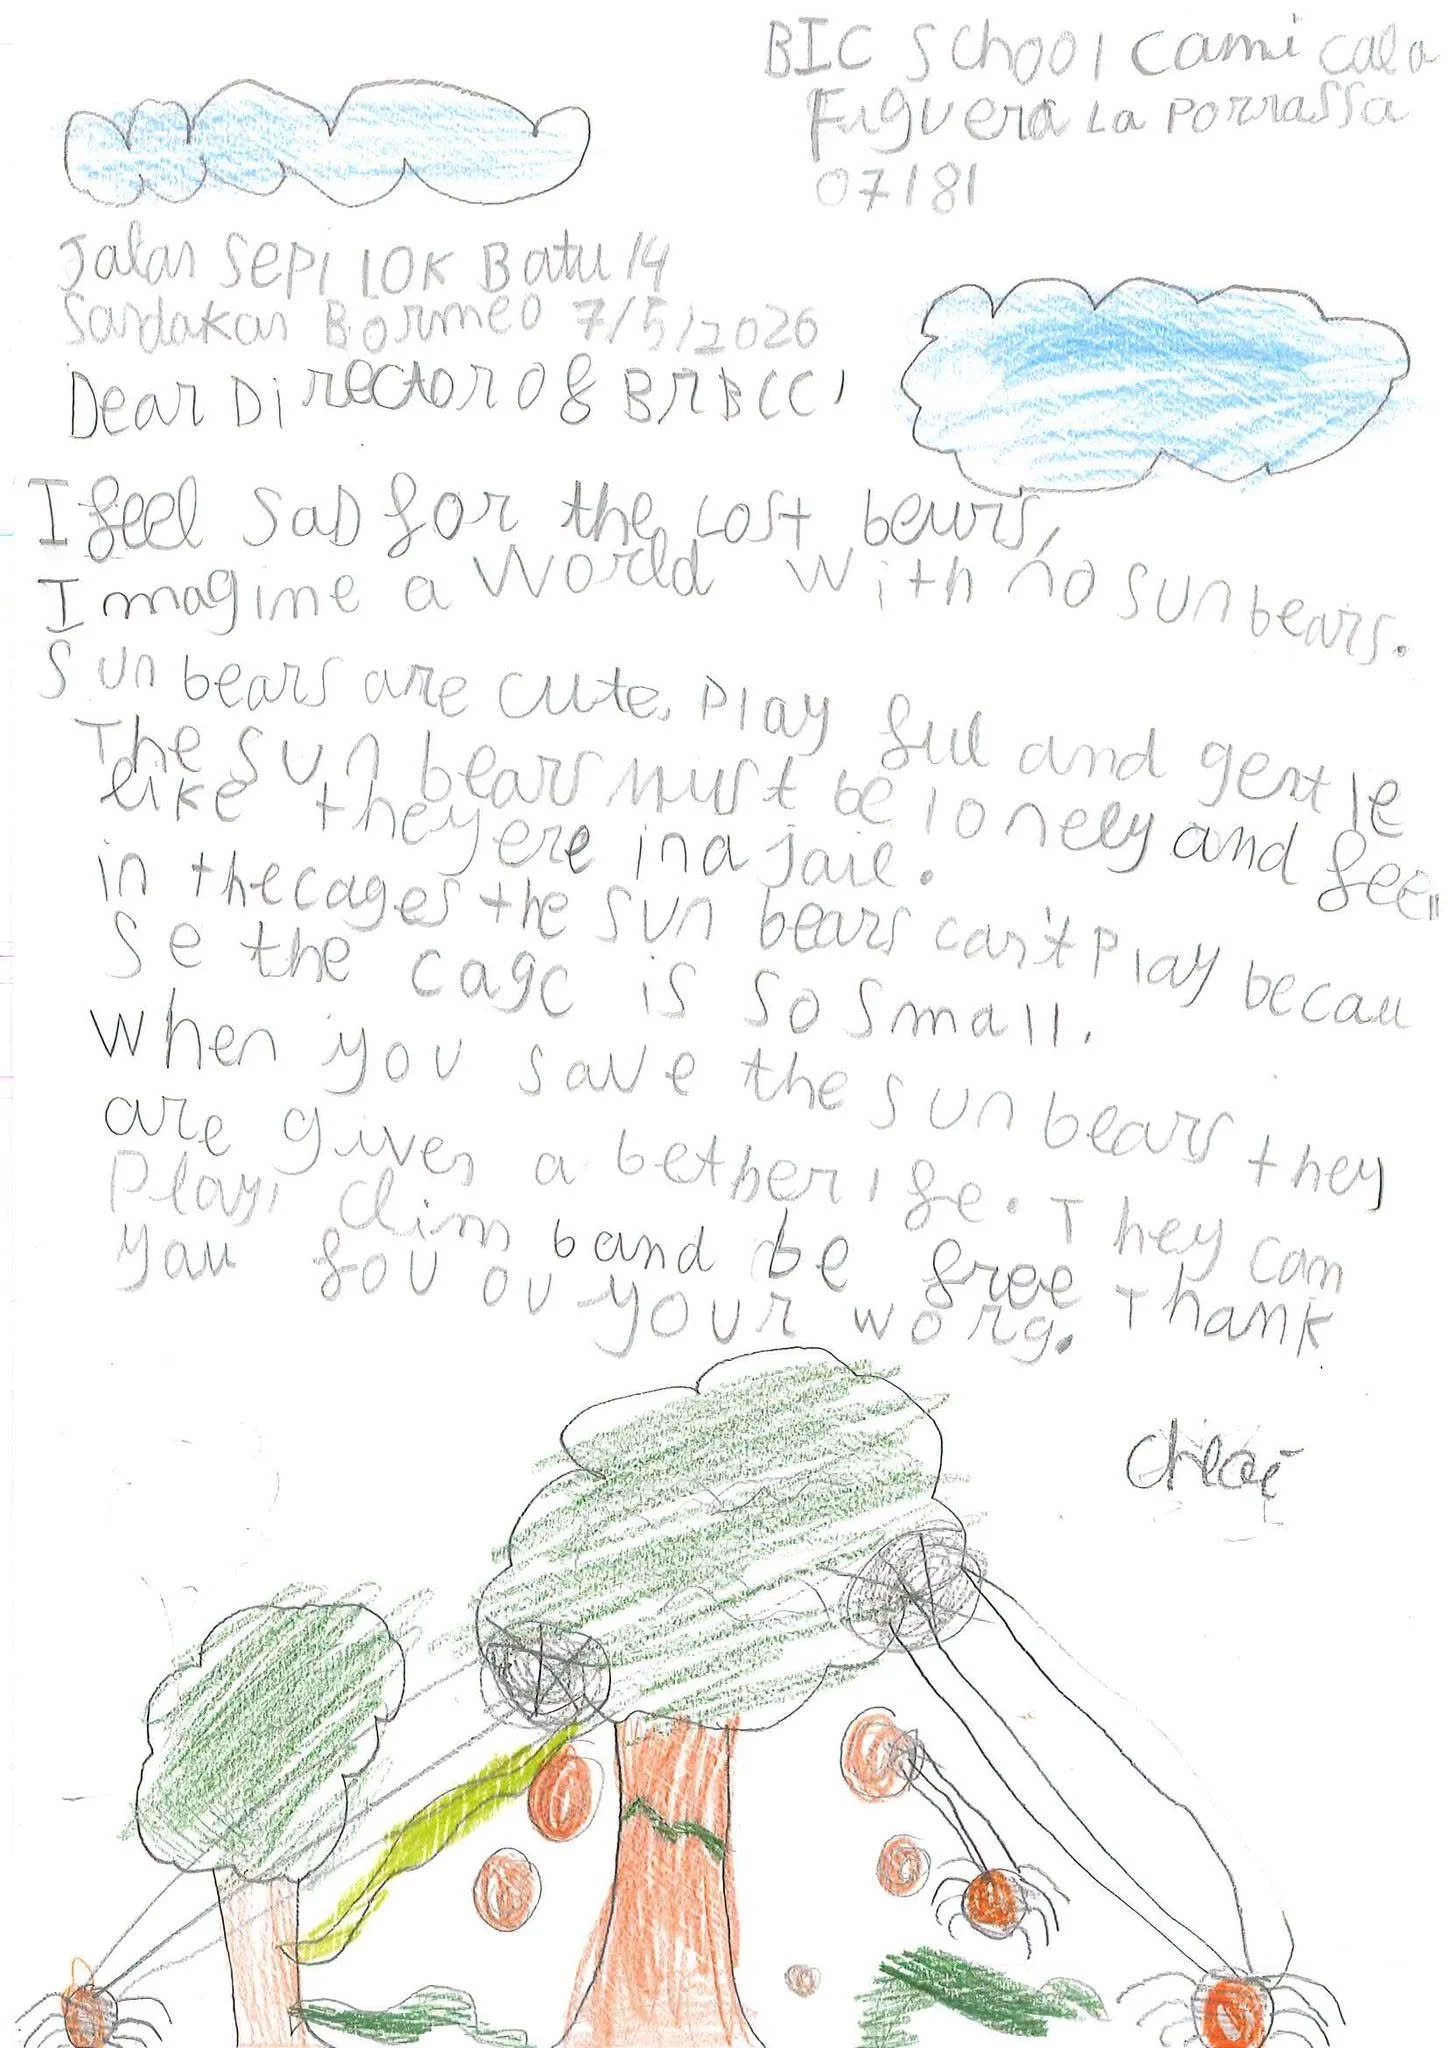 BIC School cami cala
Figuera La Porrassa
07181
Jalan Sepilok Batu 14
Sandakan Bormeo 7/5/2026
Dear Director of BRBCC,
I feel sad for the Lost bears,
Imagine a World With no sun bears.
Sun bears are cute, Play ful and gentle
The sun bears must be lonely and feel
like theyere ina jail.
in thecages the sun bears can't Play becau
se the cage is so small.
when you save the sun bears they
are given a bether life. They can
Play, clim band be free Thank
yau fou ou your worg.
Chloé